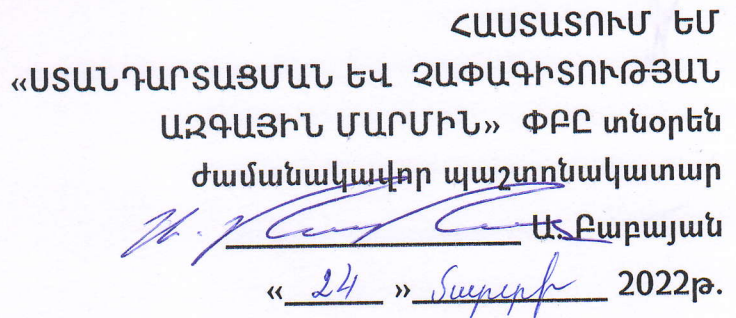 ՀԱՍՏԱՏՈՒՄ ԵՄ
«ՍՏԱՆԴԱՐՏԱՑՄԱՆ ԵՎ ՉԱՓԱԳԻՏՈՒԹՅԱՆ
ԱԶԳԱՅԻՆ ՄԱՐՄԻՆ» ՓԲԸ տնօրեն
ժամանակավոր պաշտոնակատար
Ա. Բաբայան
« 24 » մարտի 2022թ.